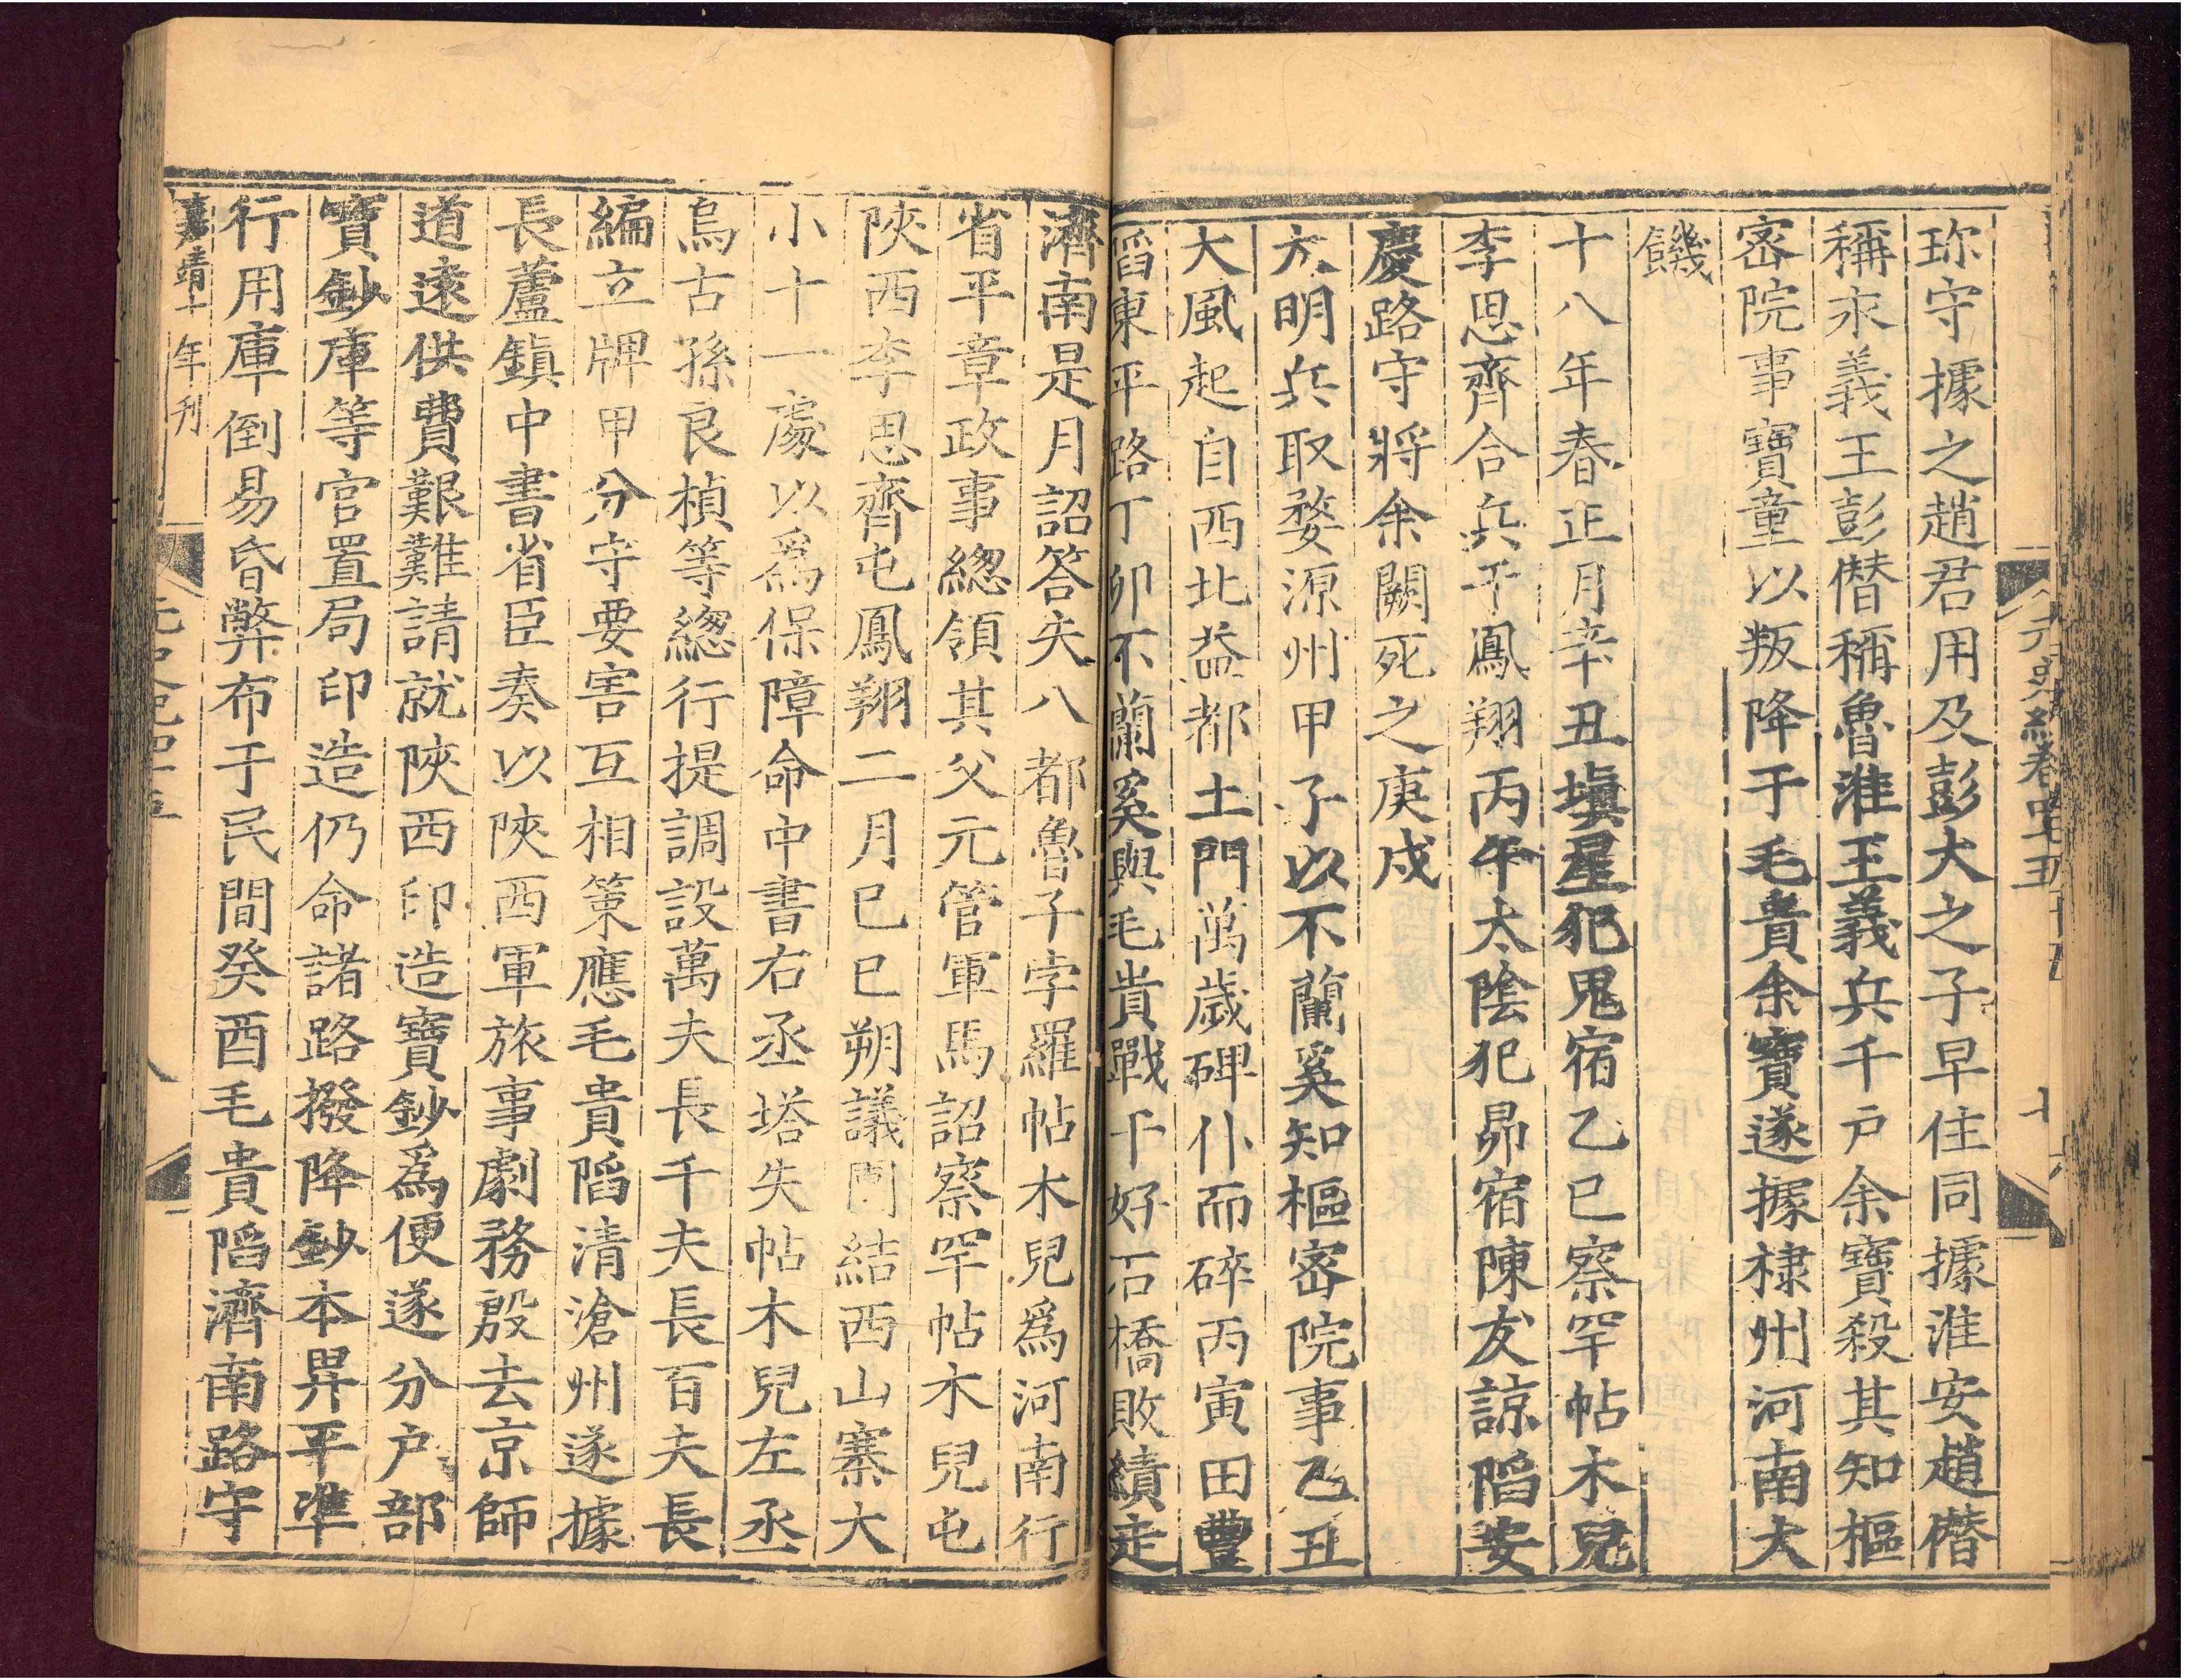 元史紀卷四十五
珎守據之趙君用及彭大之子早住同據淮安趙僭
稱永義王彭僭稱魯淮王義兵千戶余寶殺其知樞
密院事寶童以叛降于毛貴余寶遂據棣州河南大
饑
十八年春正月辛丑塡星犯鬼宿乙巳察罕帖木兒
李思齊合兵于鳳翔丙午太陰犯昴宿陳友諒陷安
慶路守將余闕死之庚戌
大明兵取婺源州甲子以不蘭奚知樞密院事乙丑
大風起自西北益都土門萬歲碑仆而碎丙寅田豐
陷東平路丁卯不蘭奚與毛貴戰于好石橋敗績走
濟南是月詔答失八都魯子孛羅帖木兒爲河南行
省平章政事緫領其父元管軍馬詔察罕帖木兒屯
陝西李思齊屯鳳翔二月己巳朔議團結西山寨大
小十一處以爲保障命中書右丞塔失帖木兒左丞
烏古孫良楨等緫行提調設萬夫長千夫長百夫長
編立牌甲分守要害互相策應毛貴陷清滄州遂據
長蘆鎮中書省臣奏以陝西軍旅事劇務殷去京師
道遠供費艱難請就陝西印造寶鈔爲便遂分户部
寶鈔庫等官置局印造仍命諸路撥降鈔本畀平準
行用庫倒易昏弊布于民間癸酉毛貴陷濟南路守
嘉靖十年刊